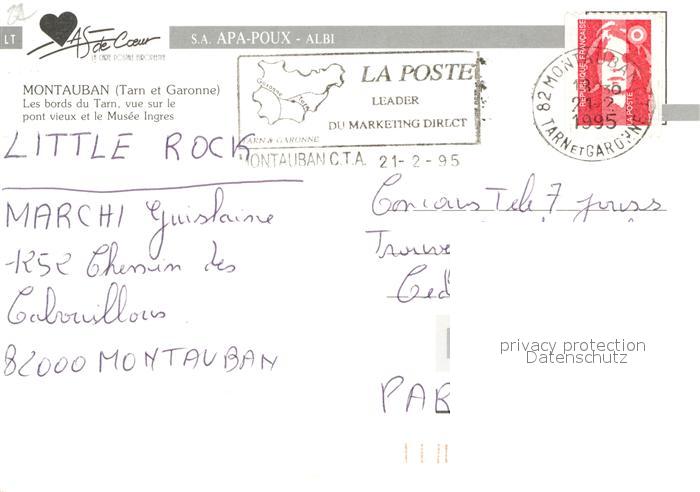 LT
AS de Cœur
LA CARTE POSTALE EUROPEENNE
S.A. APA-POUX - ALBI
MONTAUBAN (Tarn et Garonne)
Les bords du Tarn, vue sur le
pont vieux et le Musée Ingres
Garonne
Tarn
TARN & GARONNE
LA POSTE
LEADER
DU MARKETING DIRECT
MONTAUBAN C.T.A. 21-2-95
82 MONTAUBAN
21-2
1995
TARN ET GARONNE
REPUBLIQUE FRANÇAISE
LA POSTE
LITTLE ROCK
MARCHI Guislaine
1252 Chemin des
82000 MONTAUBAN
Concours Tele 7 jours
Ced
privacy protection
Datenschutz